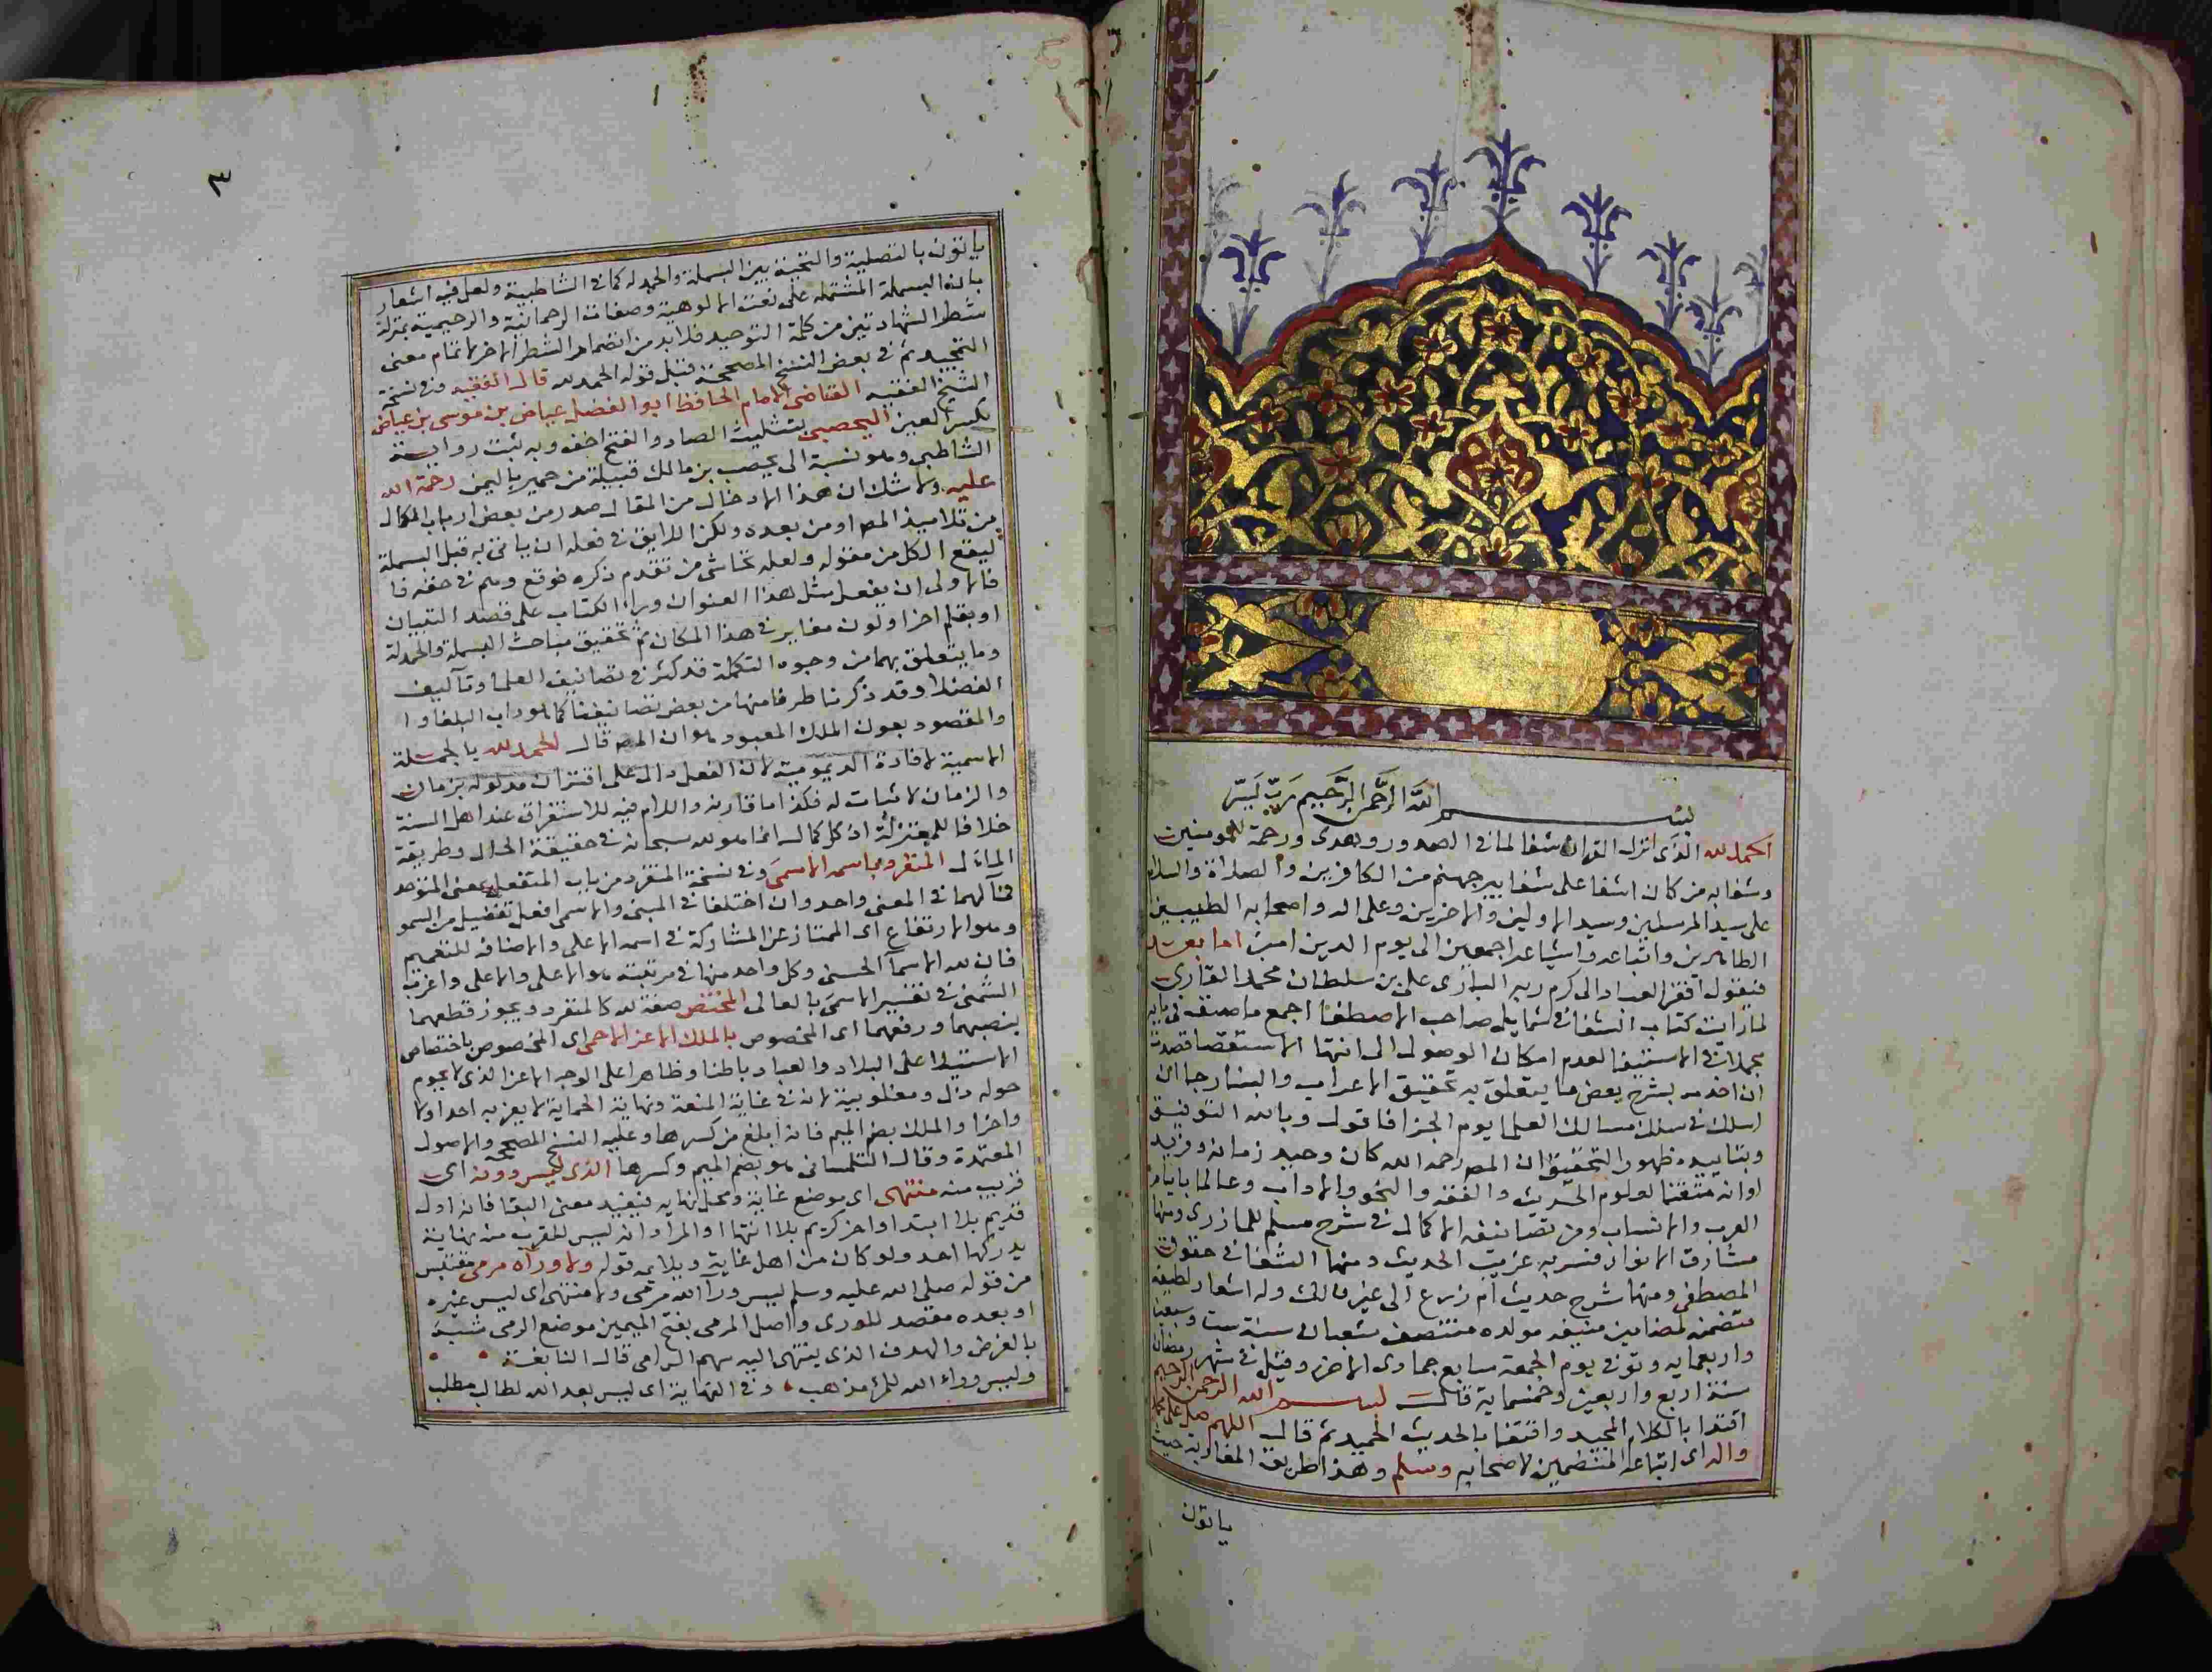 بسم الله الرحمن الرحيم رب يسر
الحمد لله الذى انزل القران شفا لما فى الصدور وهدى ورحمة للمومنين
وشفا به من كان اشفا على شفا بير جهنم من الكافرين والصلاة والسلام
على سيد المرسلين وسيد الاولين والاخرين وعلى اله واصحابه الطيبين
الطاهرين واتباعه واشياعه اجمعين الى يوم الدين امين اما بعد
فيقول افقر العباد الى كرم ربه البارى على بن سلطان محمد القارى
لما رايت كتاب الشفا فى شمايل صاحب الاصطفا اجمع ما صنف فى بابه
مجملا فى الاستيفا لعدم امكان الوصول الى انتها الاستقصا قصدت
ان اخدمه بشرح بعض ما يتعلق به تحقيق الاعراب والبنا رجا ان
اسلك فى سلك مسالك العلما يوم الجزا فاقول وبالله التوفيق
وبتاييده ظهور التحقيق ان المص رحمه الله كان وحيد زمانه وفريد
اوانه متقنا لعلوم الحديث والفقه والنحو والاداب وعالما بايام
العرب والانساب ومن تصانيفه الاكمال فى شرح مسلم للمازرى ومنها
مشارق الانوار فسر به غريب الحديث ومنها الشفا فى حقوق
المصطفى ومنها شرح حديث ام زرع الى غير ذالك وله اشعار لطيفة
متضمنة لمضامين منيفه مولده منتصف شعبان فى سنة ست وسبعين
واربعمايه وتوفى يوم الجمعة سابع جمادى الاخرة وقيل فى شهر رمضان
سنة اربع واربعين وخمسماية قال بسم الله الرحمن الرحيم
اقتدا بالكلام المجيد واقتفا بالحديث الحميد ثم قال اللهم صل على محمد
واله اى اتباعه المنتظمين لاصحابه وسلم وهذا طريق المغاربة حيث
ياتون
٣
ياتون بالتصلية والتحية بين البسملة والحمدله كما فى الشاطبية ولعل فيه اشعار
بان البسملة المشتمله على نعت الالوهية وصفات الرحمانية والرحيمية بمنزلة
شطر الشهادتين من كلمة التوحيد فلا بد من انضمام الشطر الاخر لاتمام معنى
التمجيد ثم فى بعض النسخ المصححة قبل قوله الحمد لله قال الفقيه وفى نسخة
الشيخ الفقيه القاضى الامام الحافظ ابو الفضل عياض بن موسى بن عياض
بكسر العين اليحصبى بتثليث الصاد والفتح اخف وبه ثبت رواية
الشاطبى وهو نسبة الى يحصب بن مالك قبيلة من حمير باليمن رحمة الله
عليه ولا شك ان هذا الادخال من المقال صدر من بعض ارباب الكمال
من تلاميذ المص او من بعده ولكن اللايق فى فعله ان ياتى به قبل البسملة
ليقع الكل من مقوله ولعله تحاشى من تقدم ذكره فوقع وهم فى حقه فا
فالاولى ان يفعل مثل هذا العنوان وراء الكتاب على قصد التبيان
او بقلم اخر او لون مغاير فى هذا المكان ثم تحقيق مباحث البسملة والحمدلة
وما يتعلق بهما من وجوه التكملة قد كثر فى تصانيف العلما وتآليف
الفضلا وقد ذكرنا طرفا منها من بعض تصانيفنا كما هو داب البلغا و ا
والمقصود بعون الملك المعبود هو ان المص قال الحمد لله بالجملة
الاسمية لافادة الديمومية لان الفعل دال على اقتران مدلوله بزمان
والزمان لا ثبات له فكذا ما قارنه واللام فيه للاستغراق عند اهل السنة
خلافا للمعتزلة اذ كل كمال انما هو لله سبحانه فى حقيقة الحال وطريقة
المآل المتفرد باسمه الاسمى وفى نسخة المنفرد من باب المتفعل بمعنى المتوحد
فمآلهما فى المعنى واحد وان اختلفا فى المبنى والاسمى افعل تفضيل من السمو
وهو الارتفاع اى الممتاز عن المشاركة فى اسمه الاعلى والاضافه للتعميم
فان لله الاسمآ الحسنى وكل واحد منها فى مرتبته هو الاعلى والاغلى واغرب
الشمنى فى تفسير الاسمى بالعالى المختص صفة لله كالمنفرد ويجوز قطعهما
بنصبهما ورفعهما اى المخصوص بالملك الاعز الاحمى اى المخصوص باختصاص
الاستيلا على البلاد والعباد باطنا وظاهرا على الوجه الاعز الذى لا يحوم
حوله ذل ومغلوبية لانه فى غاية المنعة ونهاية الحماية لا يعز به احد اولا
واخرا والملك بضم الميم فانه ابلغ من كسرها وعليه النسخ المصححة والاصول
المعتمدة وقال التلمسانى هو بضم الميم وكسرها الذى ليس دونه اى
قريب منه منتهى اى موضع غاية ومحل نهاية فيفيد معنى البقا فانه اول
قديم بلا ابتدا واخر كريم بلا انتها او المراد انه ليس للقرب منه نهاية
يدركها احد ولو كان من اهل غاية ويلايمه قوله ولا وراه مرمى مقتبس
من قوله صلى الله عليه وسلم ليس ورآ الله مرمى ولا منتهى اى ليس غيره
او بعده مقصد للورى واصل المرمى بفتح الميمين موضع الرمى شبه
بالغرض والهدف الذى ينتهى اليه سهم الرامى قال النابغة
وليس وراء الله للمرء مذهب وفى النهاية اى ليس بعد الله لطالب مطلب